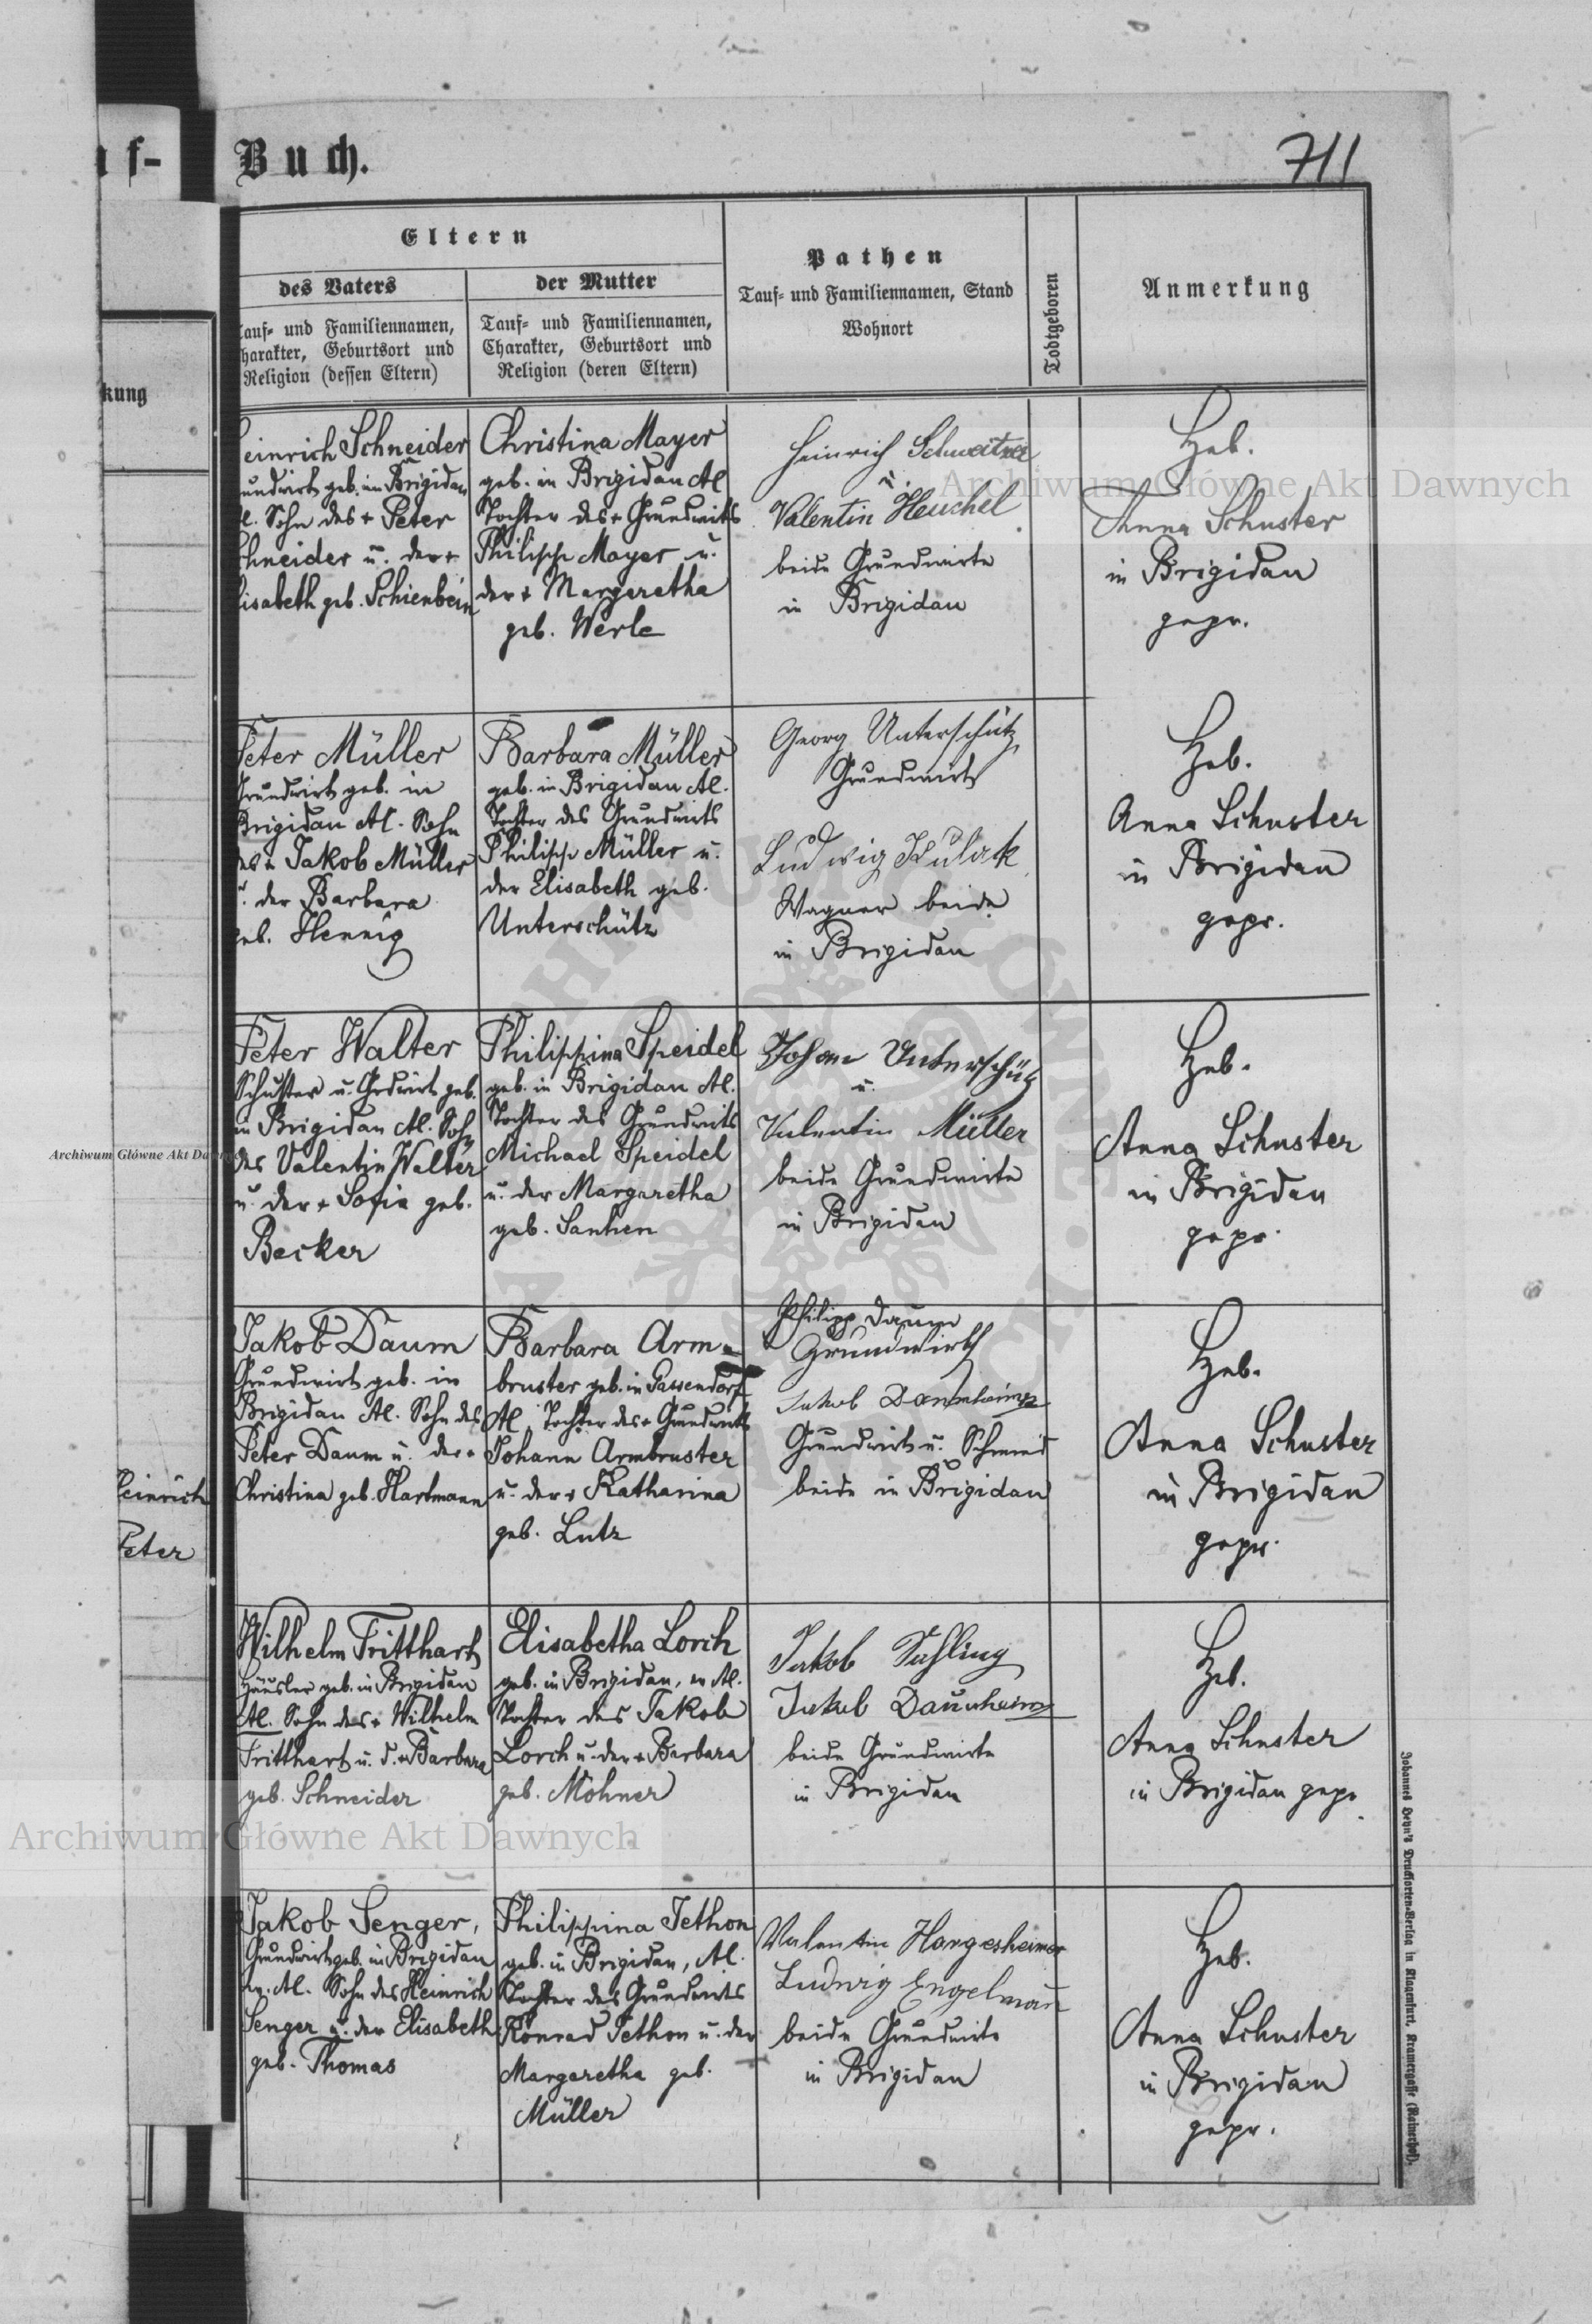 f-
Buch.
711
kung
Heinrich
Peter
Eltern
des Vaters
Tauf- und Familiennamen,
Charakter, Geburtsort und
Religion (dessen Eltern)
der Mutter
Tauf- und Familiennamen,
Charakter, Geburtsort und
Religion (deren Eltern)
Pathen
Tauf- und Familiennamen, Stand
Wohnort
Todtgeboren
Anmerkung
einrich Schneider
undwirt geb. in Brigidau
Al. Sohn des + Peter
chneider u. der +
lisabeth geb. Schienbein
Christina Mayer
geb. in Brigidau Al
Tochter des + Grundwirts
Philipp Mayer u.
der + Margaretha
geb. Werle
Heinrich Schweitzer
u.
Valentin Heuchel
beide Grundwirte
in Brigidau
Heb.
Anna Schuster
in Brigidau
gepr.
Peter Müller
Grundwirt geb. in
Brigidau Al. Sohn
des + Jakob Müller
u. der Barbara
geb. Hennig
Barbara Müller
geb. in Brigidau Al.
Tochter des Grundwirts
Philipp Müller u.
der Elisabeth geb.
Unterschütz
Georg Unterschütz
Grundwirt
Ludwig Kulak
Wagner beide
in Brigidau
Heb.
Anna Schuster
in Brigidau
gepr.
Peter Walter
Schuster u. Grdwirt geb.
in Brigidau Al. Sohn
des Valentin Walter
u. der + Sofia geb.
Becker
Philippina Speidel
geb. in Brigidau Al.
Tochter des Grundwirts
Michael Speidel
u. der Margaretha
geb. Sanhen
Johann Unterschütz
u.
Valentin Müller
beide Grundwirte
in Brigidau
Heb.
Anna Schuster
in Brigidau
gepr.
Jakob Daum
Grundwirt geb. in
Brigidau Al. Sohn des
Peter Daum u. der +
Christina geb. Hartmann
Barbara Arm-
bruster geb. in Gassendorf
Al. Tochter des + Grundwirts
Johann Armbruster
u. der + Katharina
geb. Lutz
Philipp Daum
Grundwirth
Jakob Dannheimer
Grundwirt u. Schmied
beide in Brigidau
Heb.
Anna Schuster
in Brigidau
gepr.
Wilhelm Tritthart
Häusler geb. in Brigidau
Al. Sohn des + Wilhelm
Tritthart u. d. + Barbara
geb. Schneider
Elisabetha Lorch
geb. in Brigidau, ev Al.
Tochter des Jakob
Lorch u. der + Barbara
geb. Mohner
Jakob Sahling
Jakob Daunheimer
beide Grundwirte
in Brigidau
Heb.
Anna Schuster
in Brigidau gepr
Jakob Senger,
Grundwirt geb. in Brigidau
ev. Al. Sohn des Heinrich
Senger u. der Elisabeth
geb. Thomas
Philippina Jethon
geb. in Brigidau, Al.
Tochter des Grundwirts
Konrad Jethon u. der
Margaretha geb.
Müller
Valentin Hargesheimer
Ludwig Engelmann
beide Grundwirte
in Brigidau
Heb.
Anna Schuster
in Brigidau
gepr.
Johannes Heyn's Drucksorten-Verlag in Klagenfurt, Kramergasse (Rainerhof).
Archiwum Główne Akt Dawnych
Archiwum Główne Akt Dawnych
Archiwum Główne Akt Dawnych